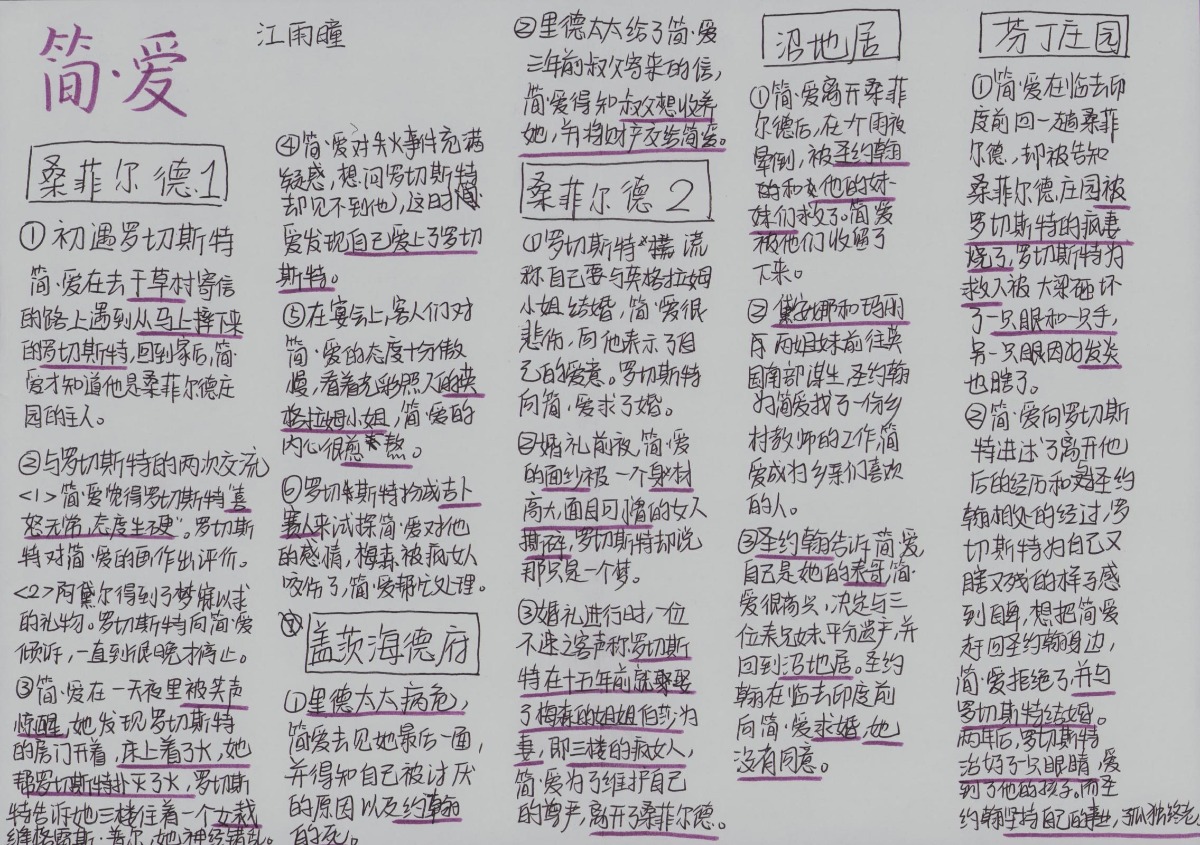 简·爱
江雨瞳
桑菲尔德1
①初遇罗切斯特
简·爱在去干草村寄信
的路上遇到从马上摔下来
的罗切斯特,回到家后,简·
爱才知道他是桑菲尔德庄
园的主人。
②与罗切斯特的两次交流
<1>简·爱觉得罗切斯特“喜
怒无常,态度生硬”。罗切斯
特对简·爱的画作出评价。
<2>阿黛尔得到了梦寐以求
的礼物。罗切斯特向简·爱
倾诉,一直到很晚才停止。
③简·爱在一天夜里被笑声
惊醒,她发现罗切斯特
的房门开着,床上着了火,她
帮罗切斯特扑灭了火,罗切斯
特告诉她三楼住着一个女裁
缝格雷斯·普尔,她神经错乱。
④简·爱对失火事件充满
疑惑,想问罗切斯特
却见不到他,这时简·
爱发现自己爱上了罗切
斯特。
⑤在宴会上,客人们对
简·爱的态度十分傲
慢,看着光彩照人的英
格拉姆小姐,简·爱的
内心很煎熬。
⑥罗切斯特扮成吉卜
赛人来试探简·爱对他
的感情,梅森被疯女人
咬伤了,简·爱帮忙处理。
盖茨海德府
①里德太太病危,
简爱去见她最后一面,
并得知自己被讨厌
的原因以及约翰
的死。
②里德太太给了简·爱
三年前叔父寄来的信,
简·爱得知叔父想收养
她,并将财产交给简爱。
桑菲尔德2
①罗切斯特 谎
称自己要与英格拉姆
小姐结婚,简·爱很
悲伤,向他表示了自
己的爱意。罗切斯特
向简·爱求了婚。
②婚礼前夜,简·爱
的面纱被一个身材
高大,面目可憎的女人
撕碎,罗切斯特却说
那只是一个梦。
③婚礼进行时,一位
不速之客声称罗切斯
特在十五年前就娶
了梅森的姐姐伯莎为
妻,即三楼的疯女人,
简·爱为了维护自己
的尊严,离开了桑菲尔德。
沼地居
①简·爱离开桑菲
尔德后,在一个雨夜
晕倒,被圣约翰
的和他的妹
妹们救了。简爱
被他们收留了
下来。
②黛安娜和玛丽
两姐妹前往英
国南部谋生,圣约翰
为简爱找了一份乡
村教师的工作,简
爱成为乡亲们喜欢
的人。
③圣约翰告诉简·爱,
自己是她的表哥,简·
爱很高兴,决定与三
位表兄妹平分遗产,并
回到沼地居。圣约
翰在临去印度前
向简·爱求婚,她
没有同意。
芬丁庄园
①简·爱在临去印
度前回一趟桑菲
尔德,却被告知
桑菲尔德庄园被
罗切斯特的疯妻
烧了,罗切斯特为
救人被大梁砸坏
了一只眼和一只手,
另一只眼因为发炎
也瞎了。
②简·爱向罗切斯
特讲述了离开他
后的经历和圣约
翰相处的经过,罗
切斯特为自己又
瞎又残的样子感
到自卑,想把简爱
赶回圣约翰身边,
简·爱拒绝了,并与
罗切斯特结婚。
两年后,罗切斯特
治好了一只眼睛,爱
到了他的孩子。而圣
约翰坚持自己的事业,孤独终老。